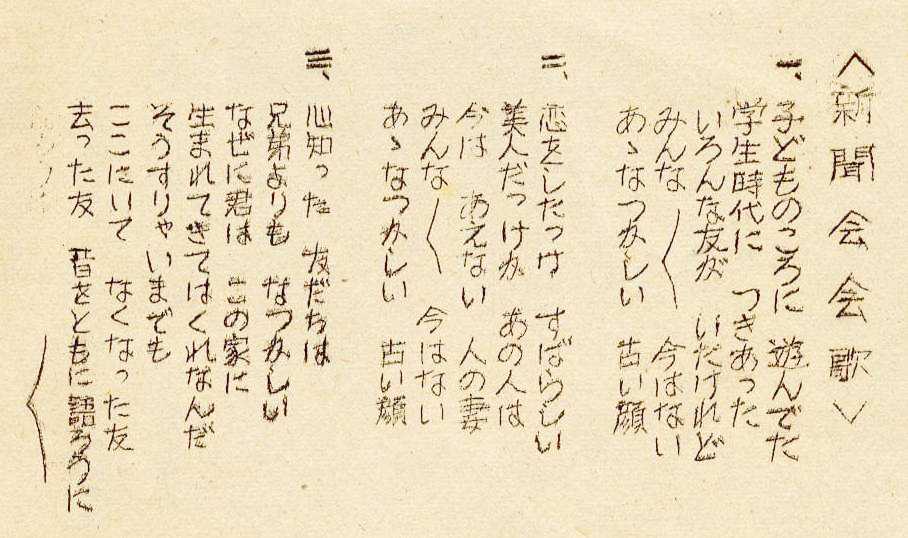 〈新聞会会歌〉
一、子どものころに 遊んでた
学生時代に つきあった
いろんな友が いたけれど
みんな〱 今はない
あゝなつかしい 古い顔
二、恋をしたっけ すばらしい
美人だっけか あの人は
今は あえない 人の妻
みんな〱 今はない
あゝなつかしい 古い顔
三、心知った 友だちは
兄弟よりも なつかしい
なぜに君は この家に
生まれてきてはくれなんだ
そうすりゃいまでも
ここにいて なくなった友
去った友 昔をともに語ろうに